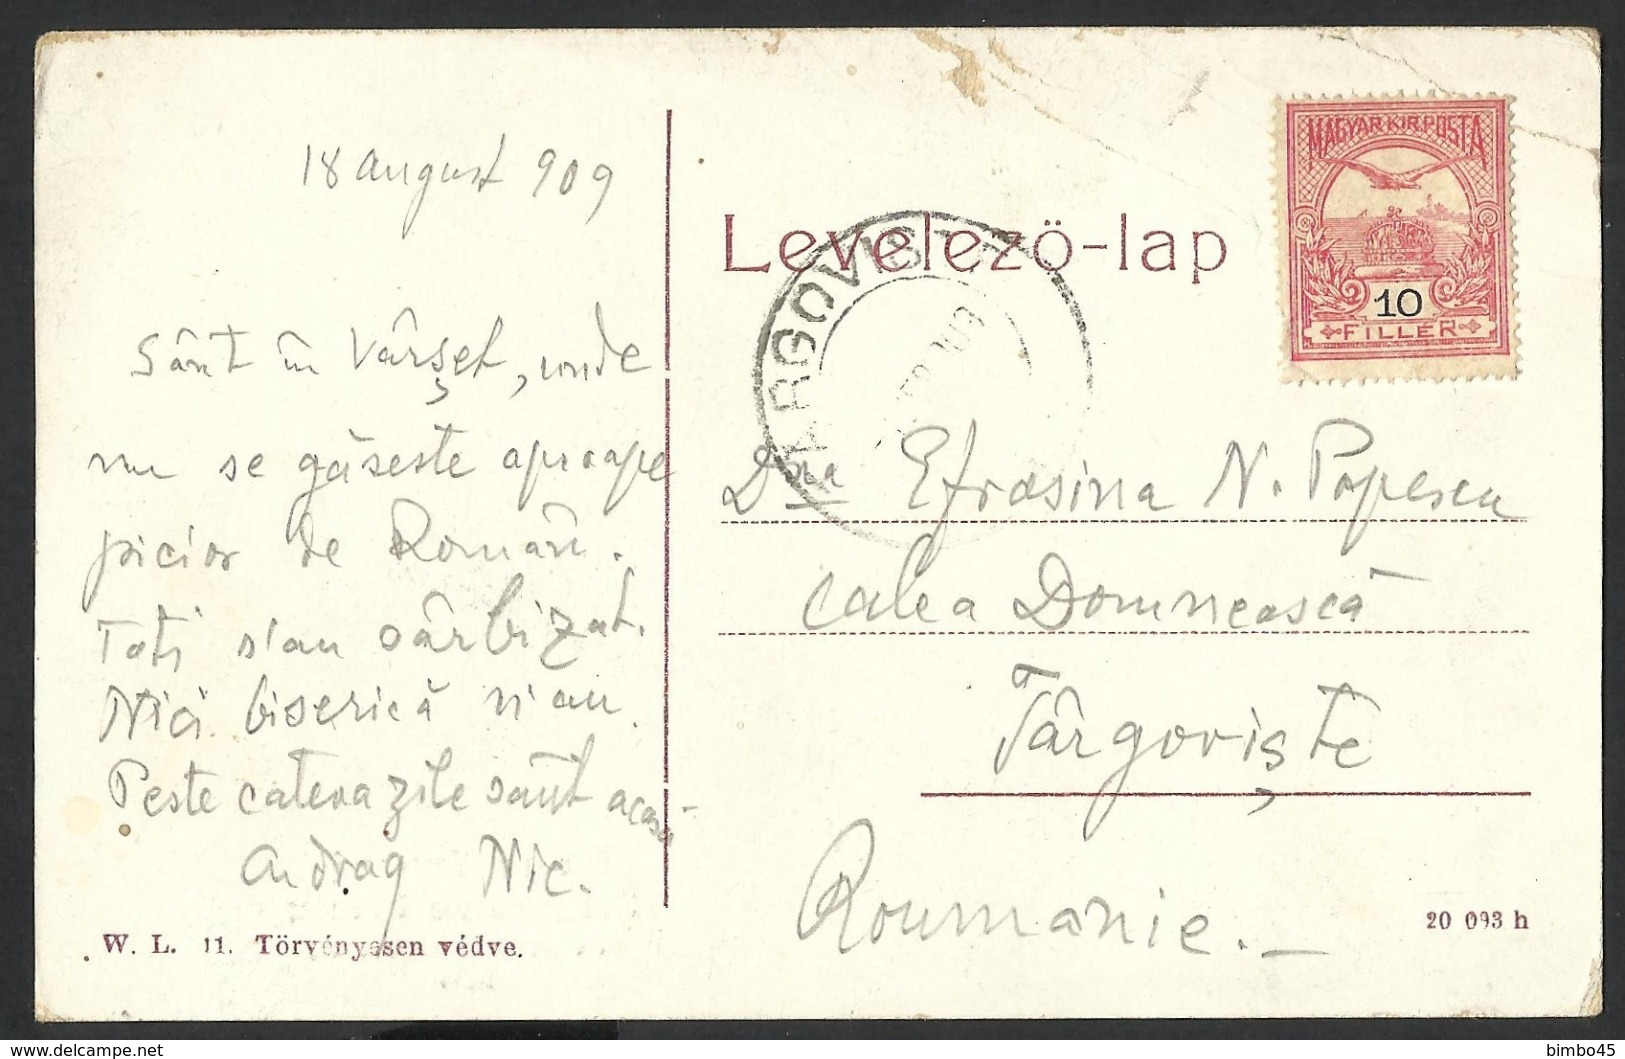 18 august 909
Sânt în Vârșet, unde
nu se găseste aproape
picior de Român.
Toți s'au sârbizat.
Nici biserică n'au.
Peste cateva zile sânt acasă
Cu drag Nic.
W. L. 11. Törvényesen védve.
Levelező-lap
TARGOVIS
MAGYAR KIR. POSTA
10
FILLÉR
Dna Efrosina N. Popescu
calea Domnească
Târgoviște
Roumanie.
20 093 h
bimbo45
https://www.delcampe.net